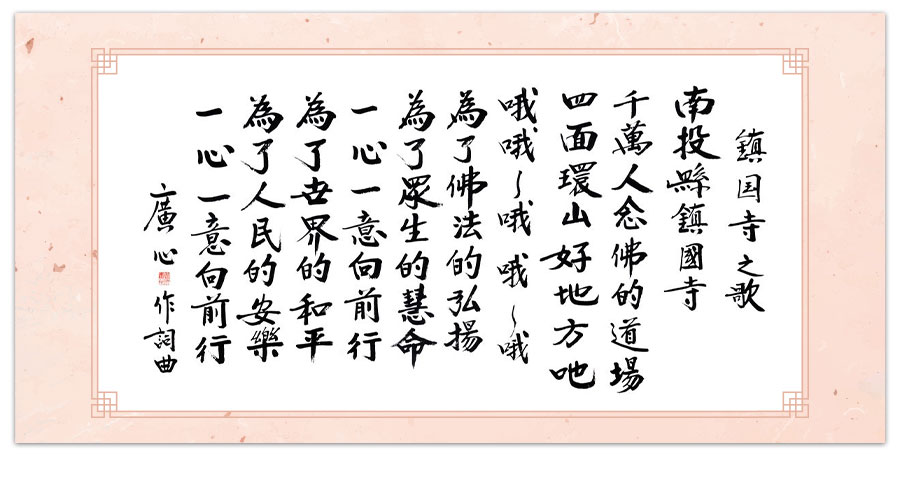 鎮国寺之歌
南投縣鎮國寺
千萬人念佛的道場
四面環山好地方吔
哦哦～哦哦～哦
為了佛法的弘揚
為了眾生的慧命
一心一意向前行
為了世界的和平
為了人民的安樂
一心一意向前行
廣心 作詞曲